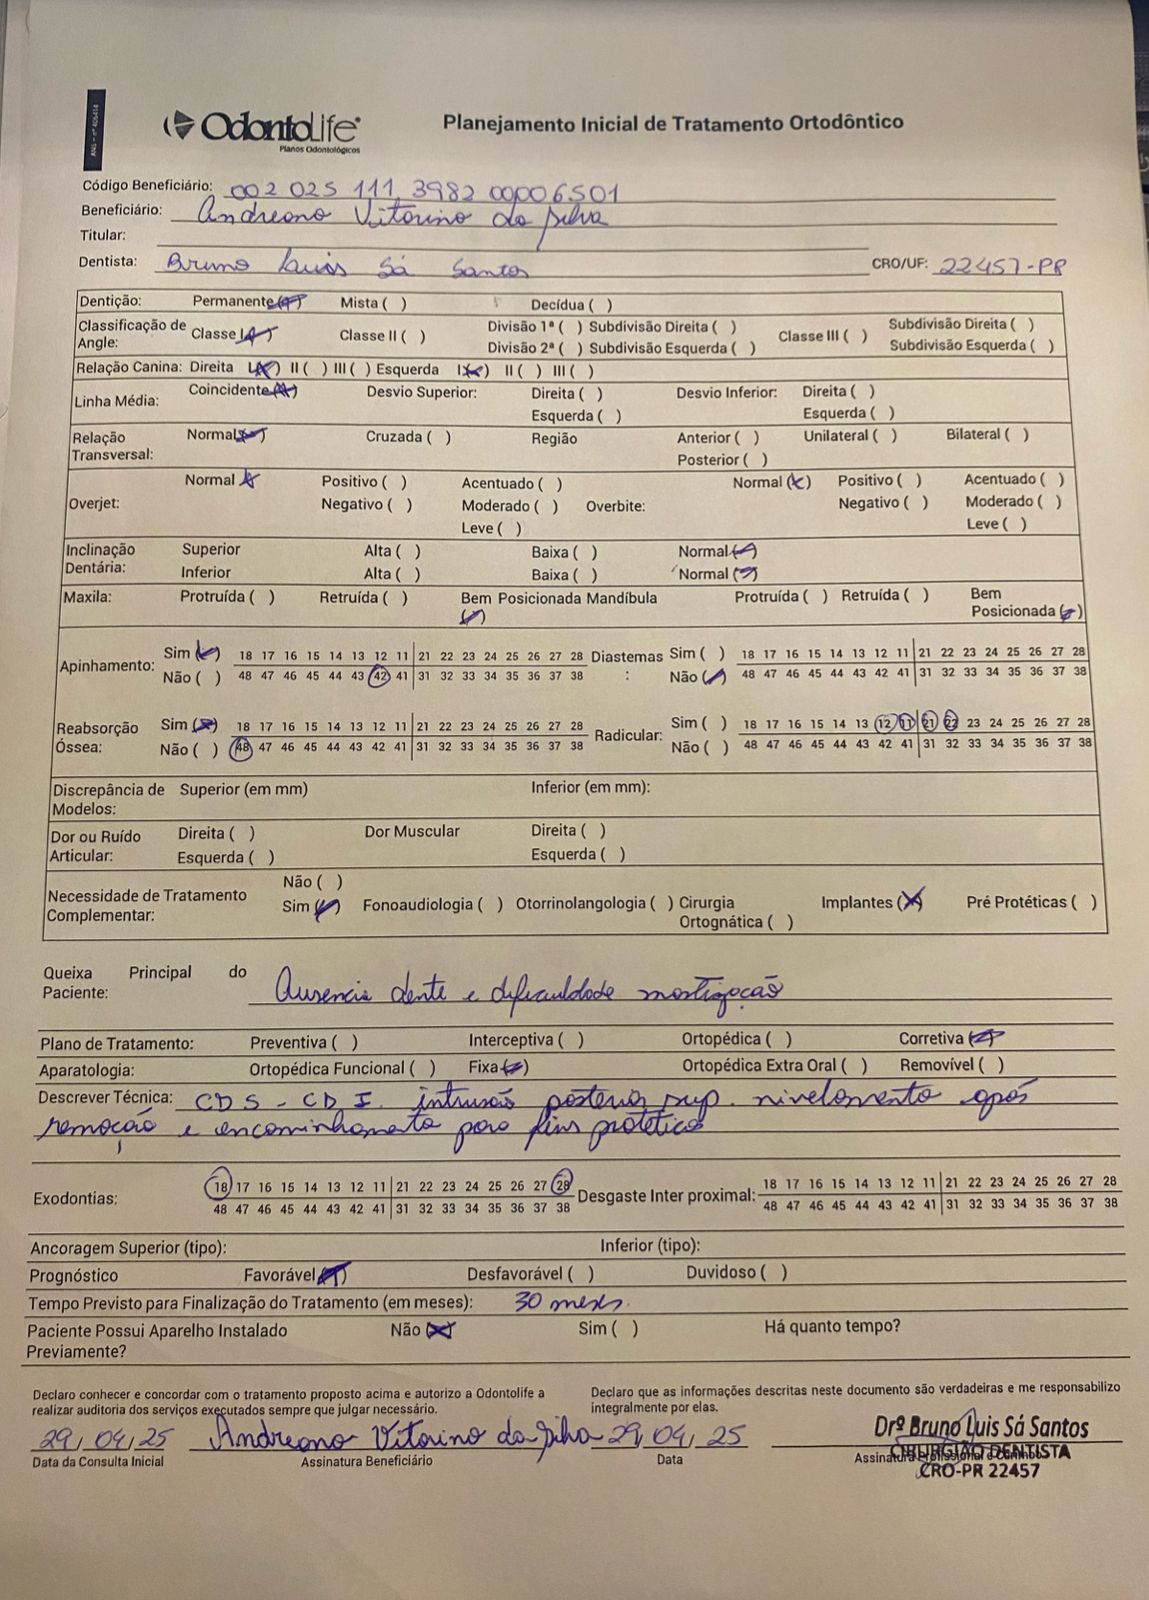 ANS - nº 406414
OdontoLife
Planos Odontológicos
Planejamento Inicial de Tratamento Ortodôntico
Código Beneficiário: 002 025 111 3982 00006501
Beneficiário: Andreano Vitorino da Silva
Titular:
Dentista: Bruno Luis Sá Santos CRO/UF: 22457-PR
Dentição: Permanente(X) Mista ( ) Decídua ( )
Classificação de Angle: Classe I(X) Classe II ( ) Divisão 1ª ( ) Subdivisão Direita ( ) Classe III ( ) Subdivisão Direita ( )
Divisão 2ª ( ) Subdivisão Esquerda ( ) Subdivisão Esquerda ( )
Relação Canina: Direita I(X) II ( ) III ( ) Esquerda I(X) II ( ) III ( )
Linha Média: Coincidente(X) Desvio Superior: Direita ( ) Desvio Inferior: Direita ( )
Esquerda ( ) Esquerda ( )
Relação Transversal: Normal(X) Cruzada ( ) Região Anterior ( ) Unilateral ( ) Bilateral ( )
Posterior ( )
Normal (X) Positivo ( ) Acentuado ( ) Normal (X) Positivo ( ) Acentuado ( )
Overjet: Negativo ( ) Moderado ( ) Overbite: Negativo ( ) Moderado ( )
Leve ( ) Leve ( )
Inclinação Superior Alta ( ) Baixa ( ) Normal (X)
Dentária: Inferior Alta ( ) Baixa ( ) Normal (X)
Maxila: Protruída ( ) Retruída ( ) Bem Posicionada (X) Mandíbula Protruída ( ) Retruída ( ) Bem Posicionada (X)
Apinhamento: Sim (X) 18 17 16 15 14 13 12 11 21 22 23 24 25 26 27 28 Diastemas : Sim ( ) 18 17 16 15 14 13 12 11 21 22 23 24 25 26 27 28
Não ( ) 48 47 46 45 44 43 42 41 31 32 33 34 35 36 37 38 Não (X) 48 47 46 45 44 43 42 41 31 32 33 34 35 36 37 38
Reabsorção Óssea: Sim (X) 18 17 16 15 14 13 12 11 21 22 23 24 25 26 27 28 Radicular: Sim ( ) 18 17 16 15 14 13 12 11 21 22 23 24 25 26 27 28
Não ( ) 48 47 46 45 44 43 42 41 31 32 33 34 35 36 37 38 Não ( ) 48 47 46 45 44 43 42 41 31 32 33 34 35 36 37 38
Discrepância de Modelos: Superior (em mm) Inferior (em mm):
Dor ou Ruído Articular: Direita ( ) Dor Muscular Direita ( )
Esquerda ( ) Esquerda ( )
Necessidade de Tratamento Complementar: Não ( )
Sim (X) Fonoaudiologia ( ) Otorrinolangologia ( ) Cirurgia Ortognática ( ) Implantes (X) Pré Protéticas ( )
Queixa Principal do Paciente: Ausencia dente e dificuldade mastigação
Plano de Tratamento: Preventiva ( ) Interceptiva ( ) Ortopédica ( ) Corretiva (X)
Aparatologia: Ortopédica Funcional ( ) Fixa(X) Ortopédica Extra Oral ( ) Removível ( )
Descrever Técnica: CDS - CDI. intrusão posterior sup. nivelamento após
remoção e encaminhamento para fins protético
Exodontias: 18 17 16 15 14 13 12 11 21 22 23 24 25 26 27 28 Desgaste Inter proximal: 18 17 16 15 14 13 12 11 21 22 23 24 25 26 27 28
48 47 46 45 44 43 42 41 31 32 33 34 35 36 37 38 48 47 46 45 44 43 42 41 31 32 33 34 35 36 37 38
Ancoragem Superior (tipo): Inferior (tipo):
Prognóstico Favorável(X) Desfavorável ( ) Duvidoso ( )
Tempo Previsto para Finalização do Tratamento (em meses): 30 meses.
Paciente Possui Aparelho Instalado Previamente? Não (X) Sim ( ) Há quanto tempo?
Declaro conhecer e concordar com o tratamento proposto acima e autorizo a Odontolife a
realizar auditoria dos serviços executados sempre que julgar necessário.
Declaro que as informações descritas neste documento são verdadeiras e me responsabilizo
integralmente por elas.
29/04/25 Andreano Vitorino da Silva 29/04/25
Drº Bruno Luis Sá Santos
CIRURGIÃO DENTISTA
CRO-PR 22457
Data da Consulta Inicial Assinatura Beneficiário Data Assinatura Profissional e Carimbo